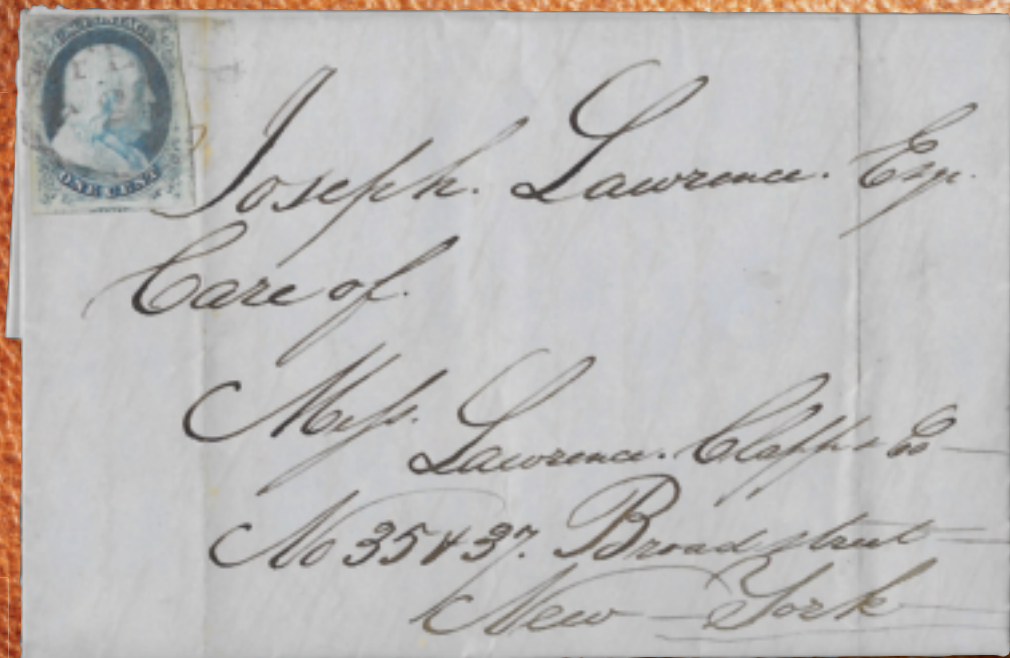 ONE CENT
Joseph. Lawrence. Esq.
Care of.
Mess.
Lawrence. Clapp & Co
No 35 & 37. Broad street
New York